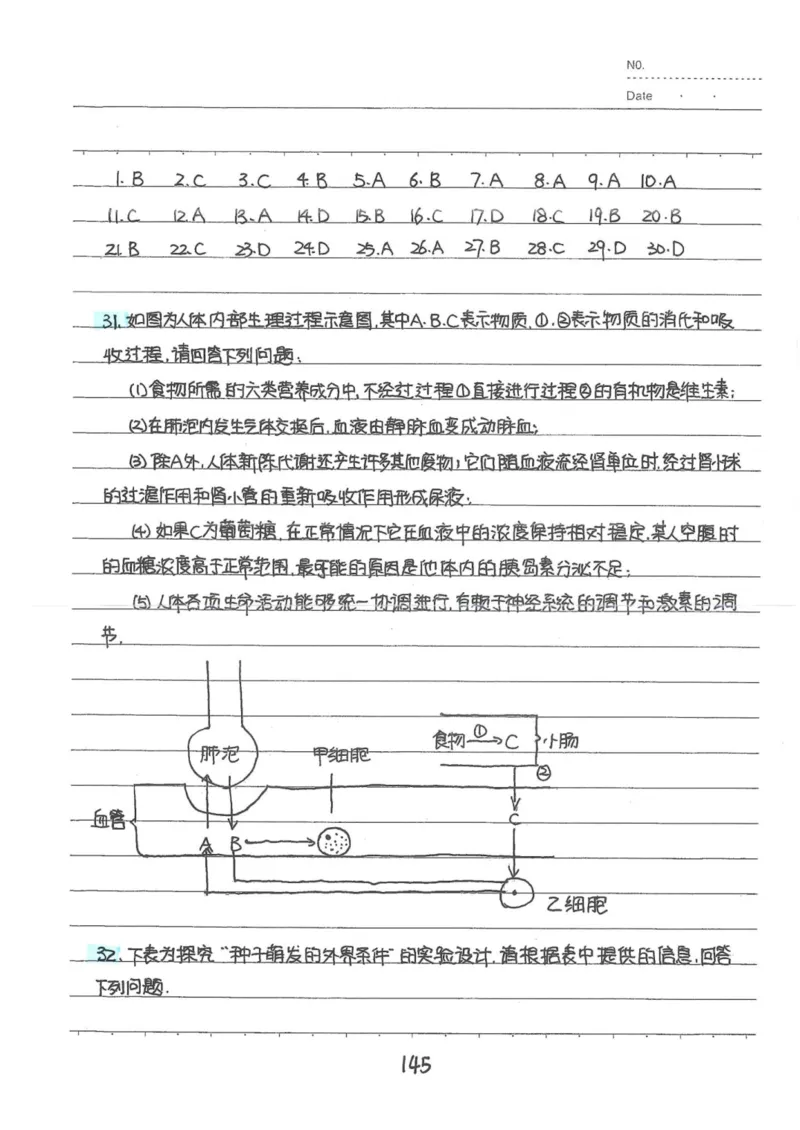 NO.
Date
1.B 2.C 3.C 4.B 5.A 6.B 7.A 8.A 9.A 10.A
11.C 12.A 13.A 14.D 15.B 16.C 17.D 18.C 19.B 20.B
21.B 22.C 23.D 24.D 25.A 26.A 27.B 28.C 29.D 30.D
31.如图为人体内部生理过程示意图,其中A.B.C表示物质,①.②表示物质的消化和吸
收过程,请回答下列问题:
(1)食物所需的六类营养成分中,不经过过程①直接进行过程②的有机物是维生素;
(2)在肺泡内发生气体交换后,血液由静脉血变成动脉血;
(3)除A外,人体新陈代谢还产生许多其他废物;它们随血液流经肾单位时,经过肾小球
的过滤作用和肾小管的重新吸收作用形成尿液;
(4)如果C为葡萄糖,在正常情况下它在血液中的浓度保持相对稳定,某人空腹时
的血糖浓度高于正常范围,最可能的原因是他体内的胰岛素分泌不足;
(5)人体各项生命活动能够统一协调进行,有赖于神经系统的调节和激素的调
节.
食物 ① C 小肠
肺泡 甲细胞
②
血管 C
A B
乙细胞
32.下表为探究“种子萌发的外界条件”的实验设计,请根据表中提供的信息,回答
下列问题.
145